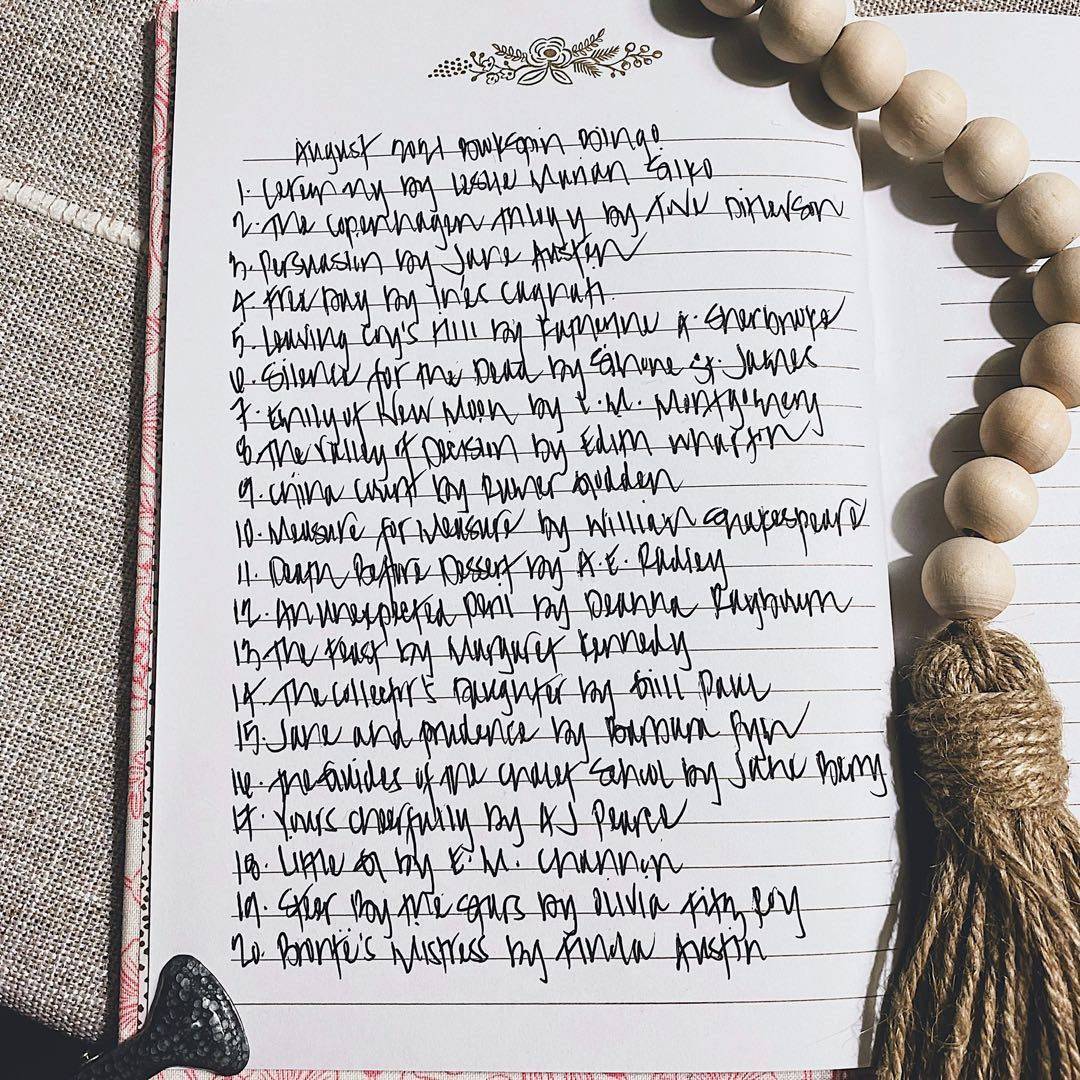 August 2021 Bookspin Bingo
1. Ceremony by Leslie Marian Silko
2. The Copenhagen Trilogy by Tove Ditlevson
3. Persuasion by Jane Austen
4. Free Day by Inès Cagnati
5. Leaving Coy's Hill by Katherine A. Sherbrooke
6. Silence for the Dead by Simone St. James
7. Emily of New Moon by L.M. Montgomery
8. The Valley of Decision by Edith Wharton
9. China Court by Rumer Godden
10. Measure for Measure by William Shakespeare
11. Death Before Dessert by A.E. Radley
12. An Unexpected Peril by Deanna Raybourn
13. The Feast by Margaret Kennedy
14. The Collector's Daughter by Gill Paul
15. Jane and Prudence by Barbara Pym
16. The Guides of the Chalet School by Jane Berry
17. Yours Cheerfully by AJ Pearce
18. Little by E.M. Channon
19. Steer By the Stars by Olivia FitzRoy
20. Brontë's Mistress by Finola Austin